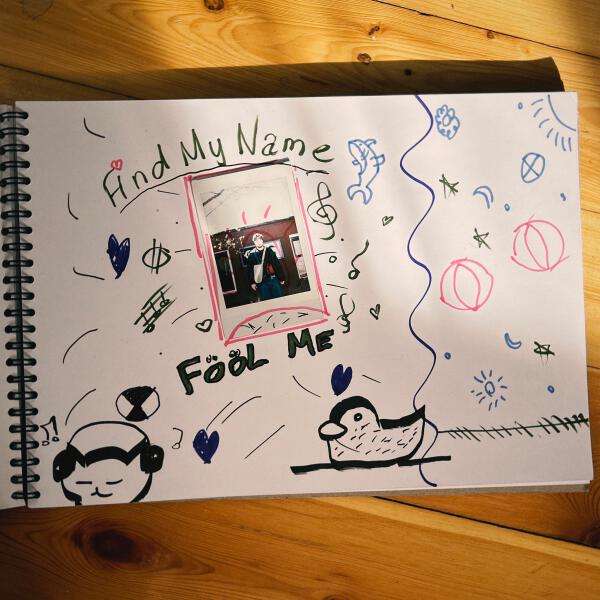 Find My Name
FööL ME